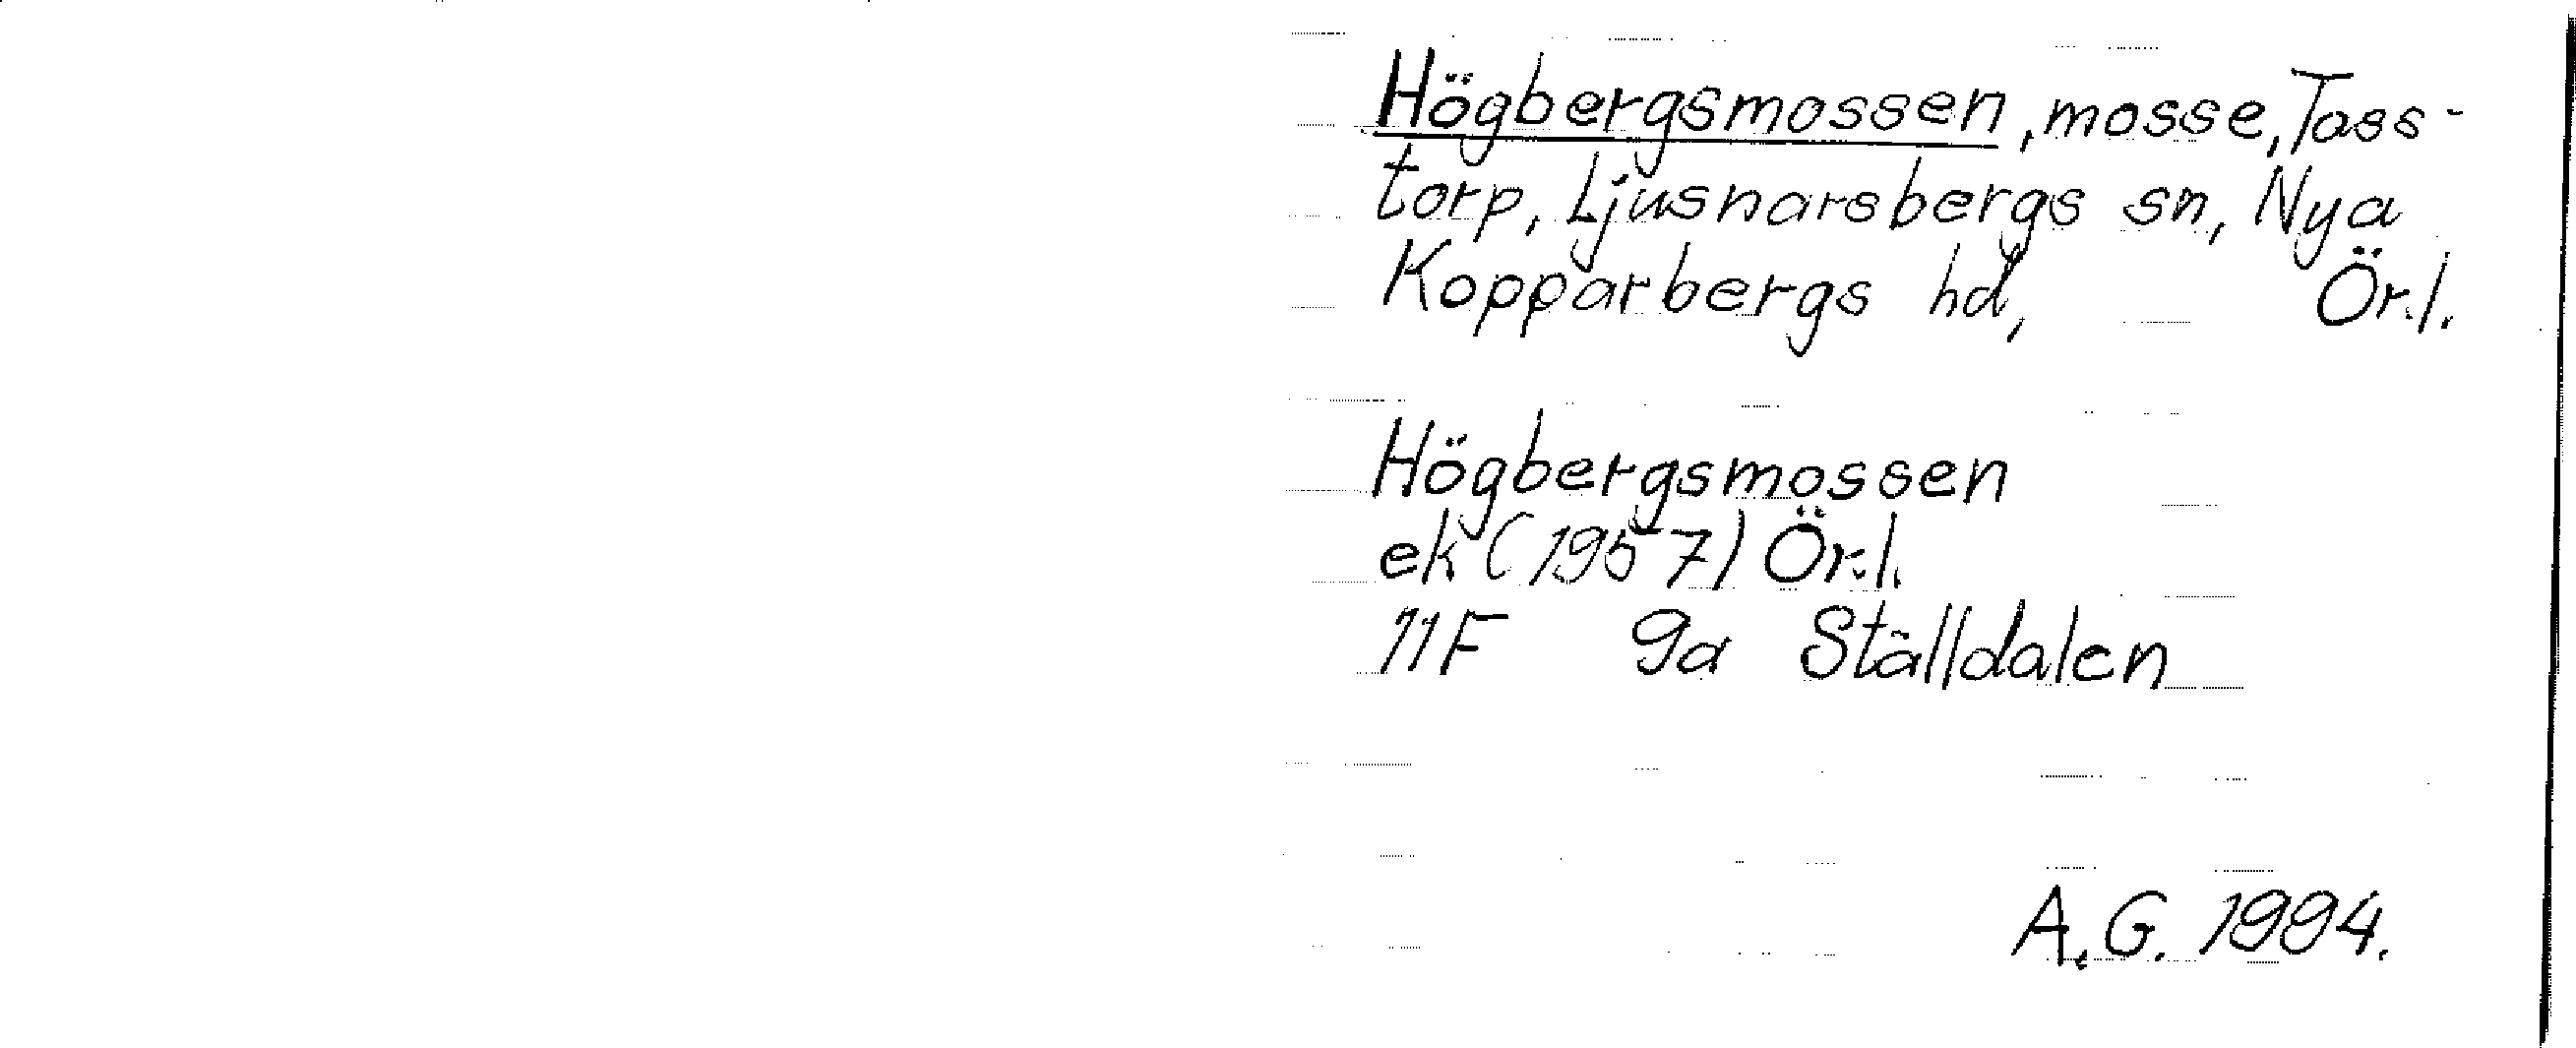 Högbergsmossen, mosse, Tass-
torp, Ljusnarsbergs sn, Nya
Kopparbergs hd, Ör.l.
Högbergsmossen
ek (1957) Ör.l.
11F 9a Ställdalen
A.G. 1994.